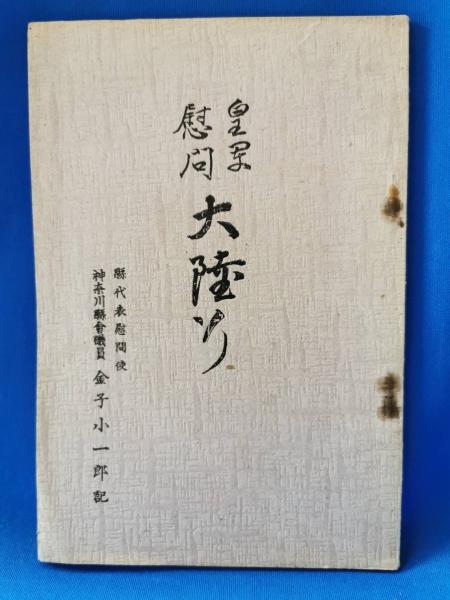 皇軍
慰問
大陸行
縣代表慰問使
神奈川縣會議員
金子小一郎記